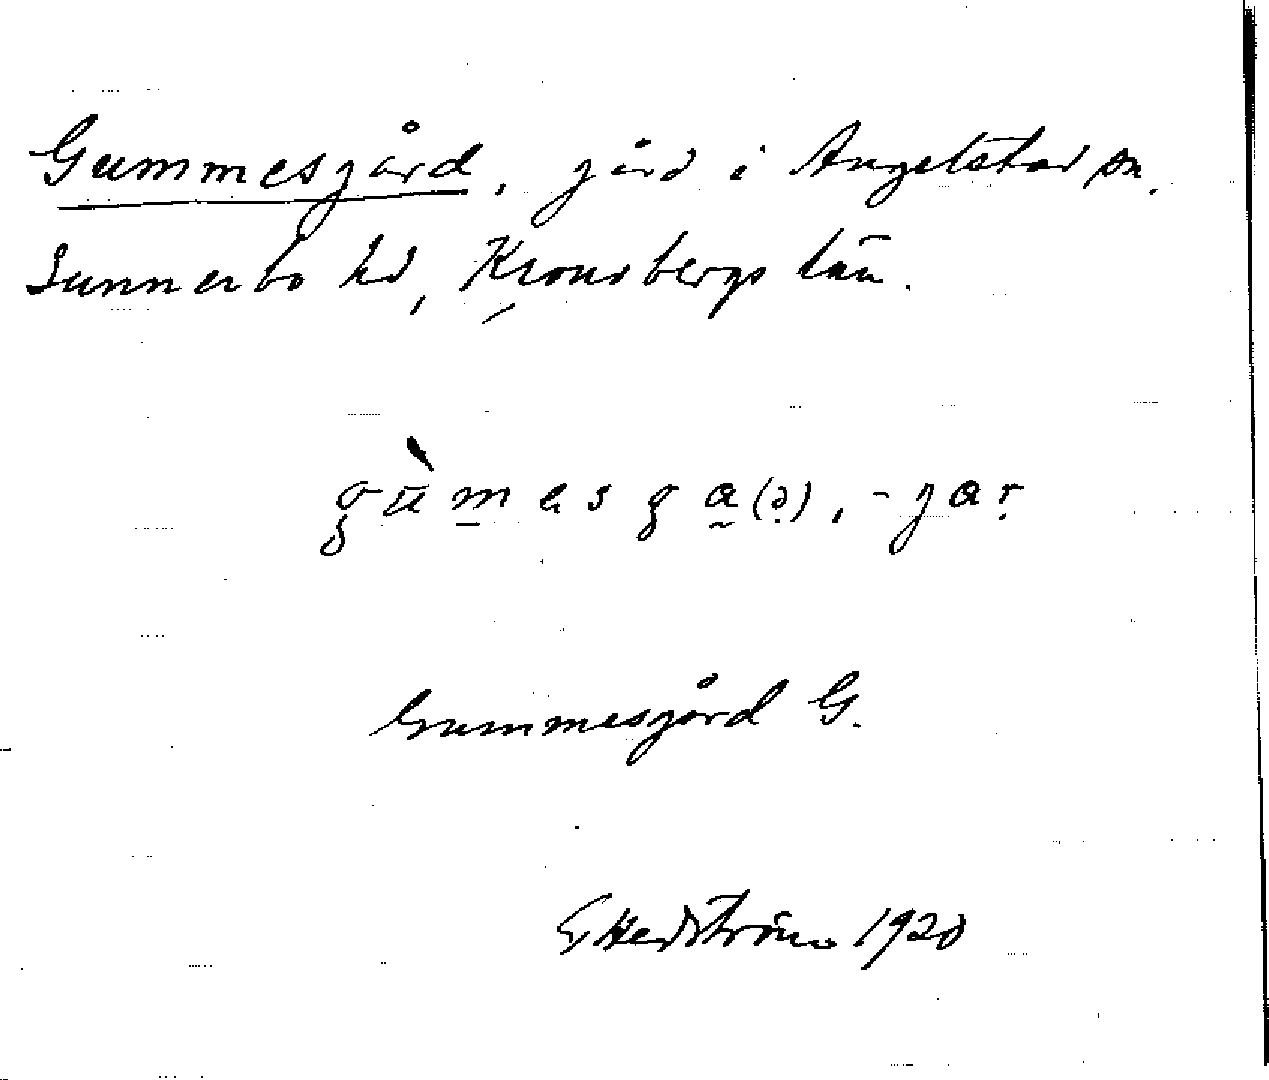 Gummesgård, gård i Angelstad sn,
Sunnerbo hd, Kronobergs län.
gùmesga(d), -gar
Gummesgård G.
G Hedström 1920